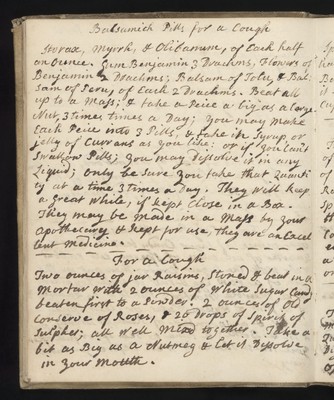 Balsamick Pills for a Cough
Storax, Myrrh, & Olibanum, of Each half
an Ounce. Gum Benjamin 3 Drachms, Flowers of
Benjamin 2 Drachms; Balsam of Tolu, & Bal:
sam of Peru, of Each 2 Drachms. Beat all
up to a Mass; & take a Peice as big as a large
Nut, 3 Times times a Day; you may Make
Each Peice into 3 Pills, & take it in Syrup or
jelly of Currans as you like: or if you Can't
Swallow Pills; you may Dissolve it in any
Liquid; Only be Sure you take that Quanti
ty at a time 3 times a Day. They will keep
a great while, if kept Close in a Box.
They may be Made in a Mass by your
Apothecary & Kept for use, they are an Excel
lent Medicine.
For a Cough
Two ounces of jar Raisins, Stoned & beat in a
Mortar with 2 ounces of White Sugar Candy
beaten first to a Powder. 2 ounces of Old
Conserve of Roses, & 20 Drops of Spirit of
Sulpher; all Well Mixd together. Take a
bit as Big as a Nutmeg & let it Dissolve
in your Mouth.